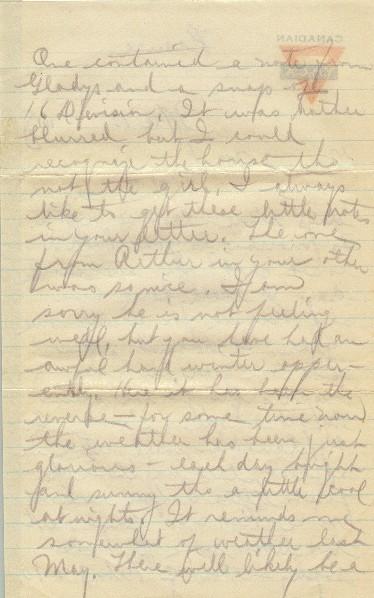 CANADIAN
One contained a note from
Gladys and a snap of
16 Division. It was rather
blurred but I could
recognize the house tho
not the girl. I always
like to get these little notes
in your letter. The one
from Arthur in your other
was so nice. I am
sorry he is not feeling
well, but you have had an
awful hard winter appar-
ently. Here it has been the
reverse – for some time now
the weather has been just
glorious – each day bright
and sunny tho a little cool
at nights. It reminds me
somewhat of weather last
May. There will likely be a